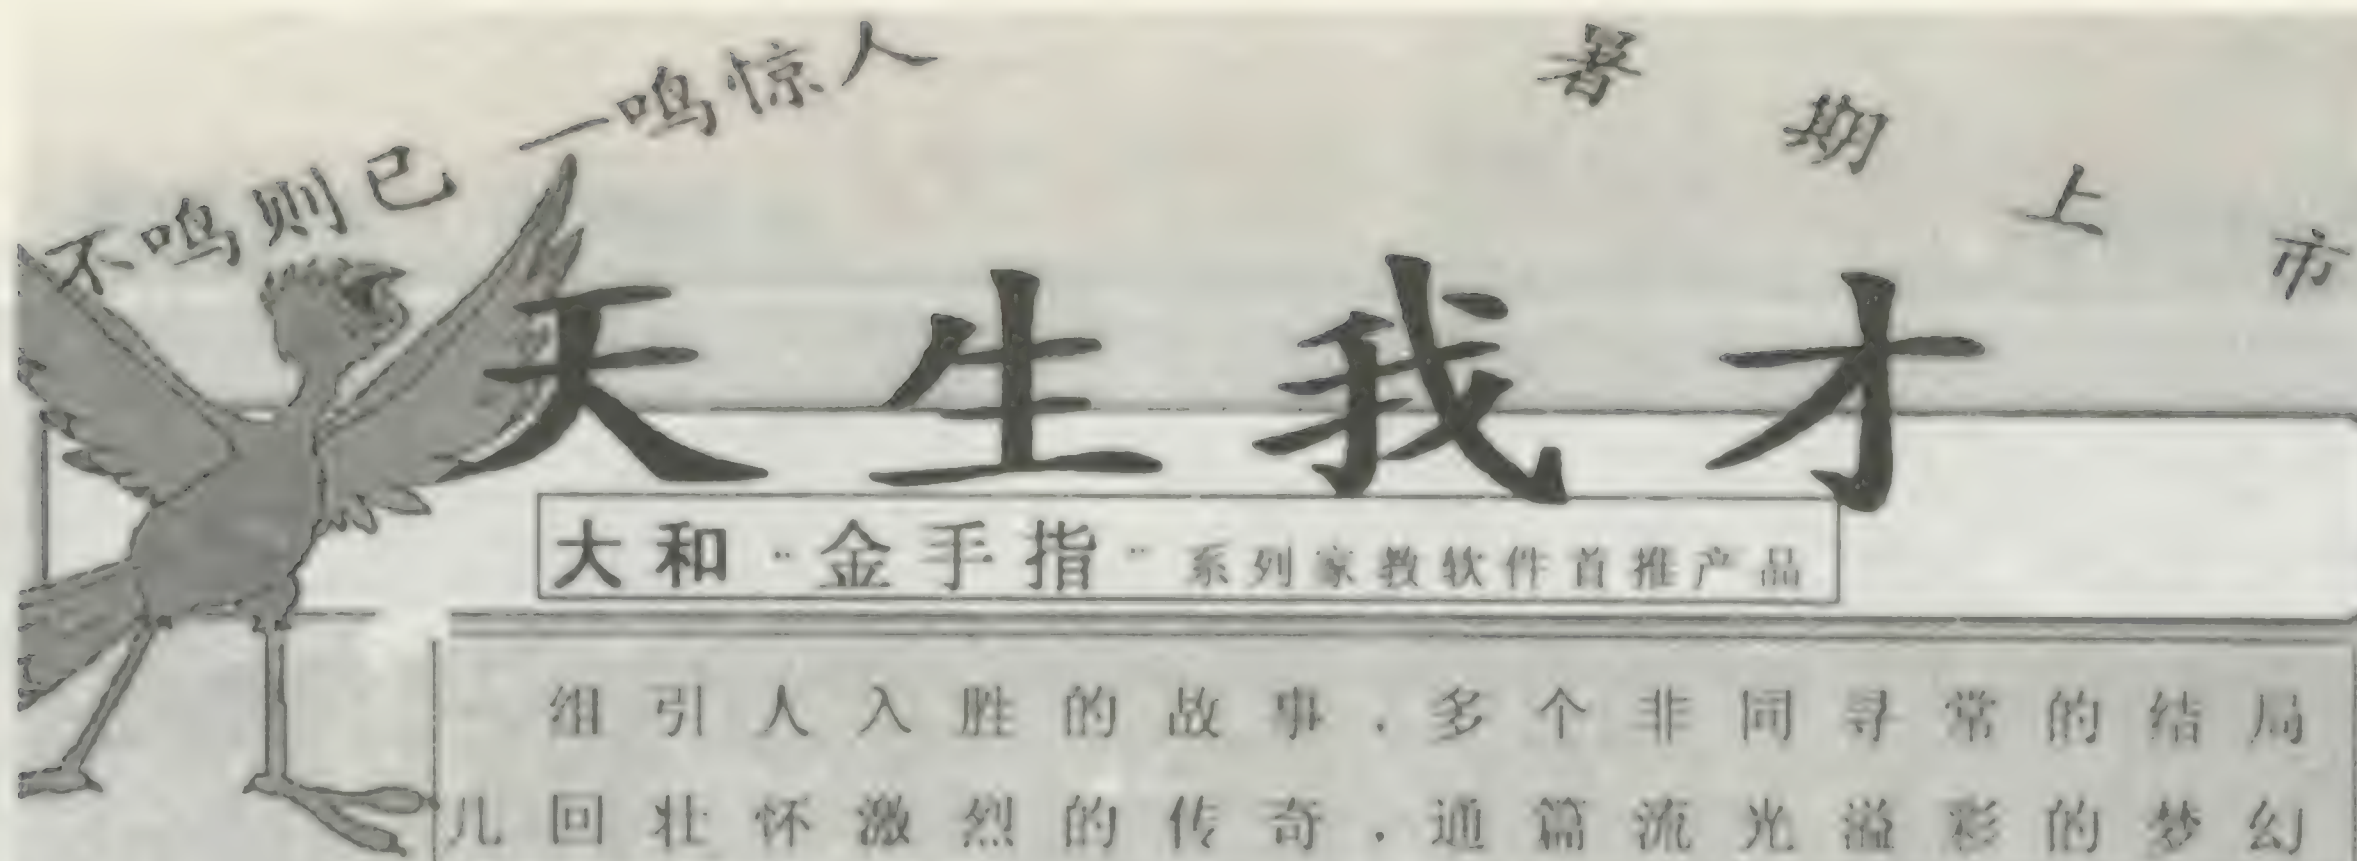 不鸣则已 一鸣惊人
暑期上市
天生我才
大和“金手指”系列家教软件首推产品
组引人入胜的故事，多个非同寻常的结局
几回壮怀激烈的传奇，通篇流光溢彩的梦幻